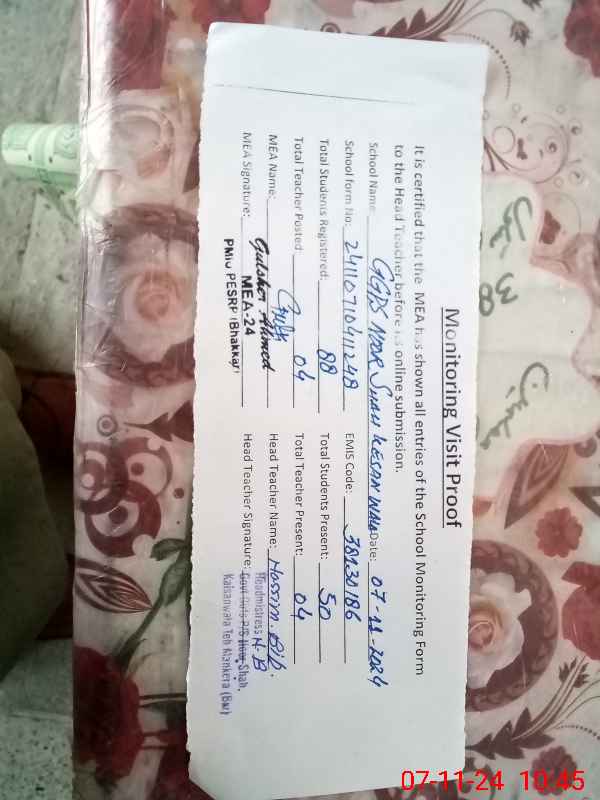 Monitoring Visit Proof
It is certified that the MEA has shown all entries of the School Monitoring Form
to the Head Teacher before its online submission.
School Name GGPS NOOR SHAH KESAN WALA Date: 07-11-2024
School form No: 24110710411248 EMIS Code: 38130186
Total Students Registered: 88 Total Students Present: 50
Total Teacher Posted: 04 Total Teacher Present: 04
MEA Name: Gulsher Ahmed Head Teacher Name: Hassim. Bibi
MEA Signature: Head Teacher Signature: H. B
MEA-24
PMIU PESRP (Bhakkar)
Headmistress
Govt Girls P/S Noor Shah,
Kaisanwala Teh Mankera (Bkr)
38
07-11-24 10:45